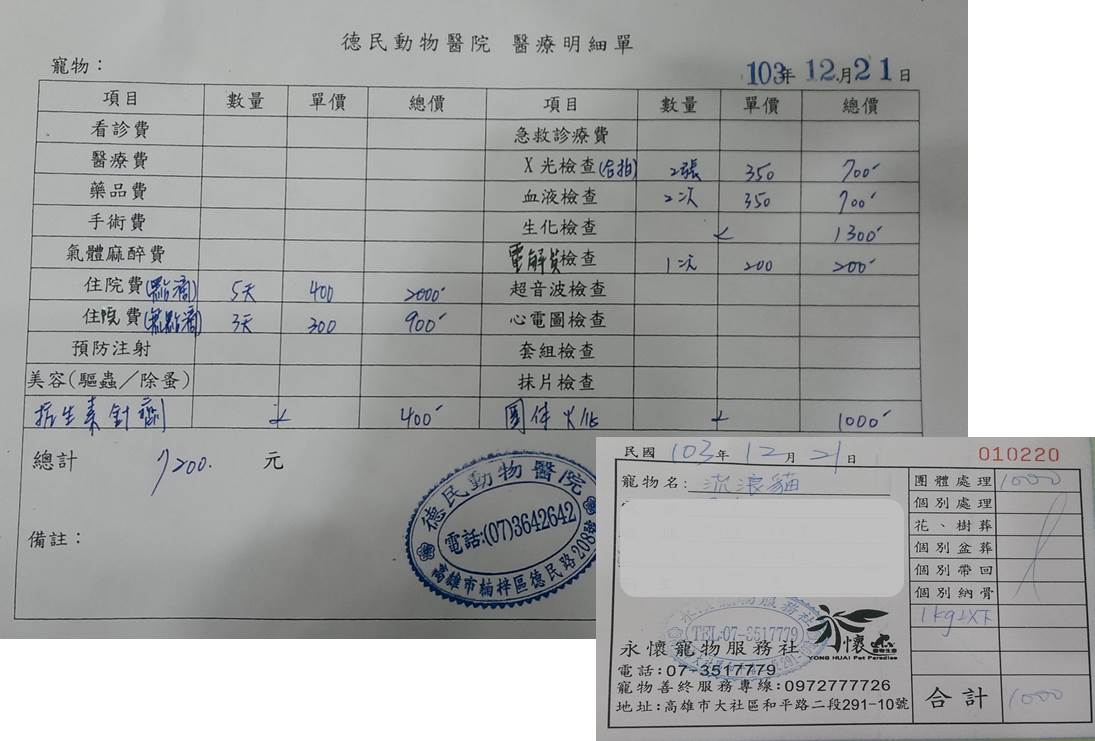 德民動物醫院 醫療明細單
寵物：
103年 12月21日
項目 數量 單價 總價 項目 數量 單價 總價
看診費 急救診療費
醫療費 X光檢查(合拍) 2張 350 700
藥品費 血液檢查 2次 350 700
手術費 生化檢查 1300
氣體麻醉費 電解質檢查 1次 200 200
住院費(點滴) 5天 400 2000 超音波檢查
住院費(無點滴) 3天 300 900 心電圖檢查
預防注射 套組檢查
美容(驅蟲／除蚤) 抹片檢查
抗生素針劑 400 團体火化 1000
總計 7200. 元
備註：
德民動物醫院
電話:(07)3642642
高雄市楠梓區德民路208號
民國 103年 12月 21日
010220
寵物名: 流浪貓
團體處理 1000
個別處理
花、樹葬
個別盆葬
個別帶回
個別納骨
1kg以下
合計 1000
TEL:07-3517779
永懷
YONG HUAI Pet Paradise
永懷寵物服務社
電話:07-3517779
寵物善終服務專線:0972777726
地址:高雄市大社區和平路二段291-10號